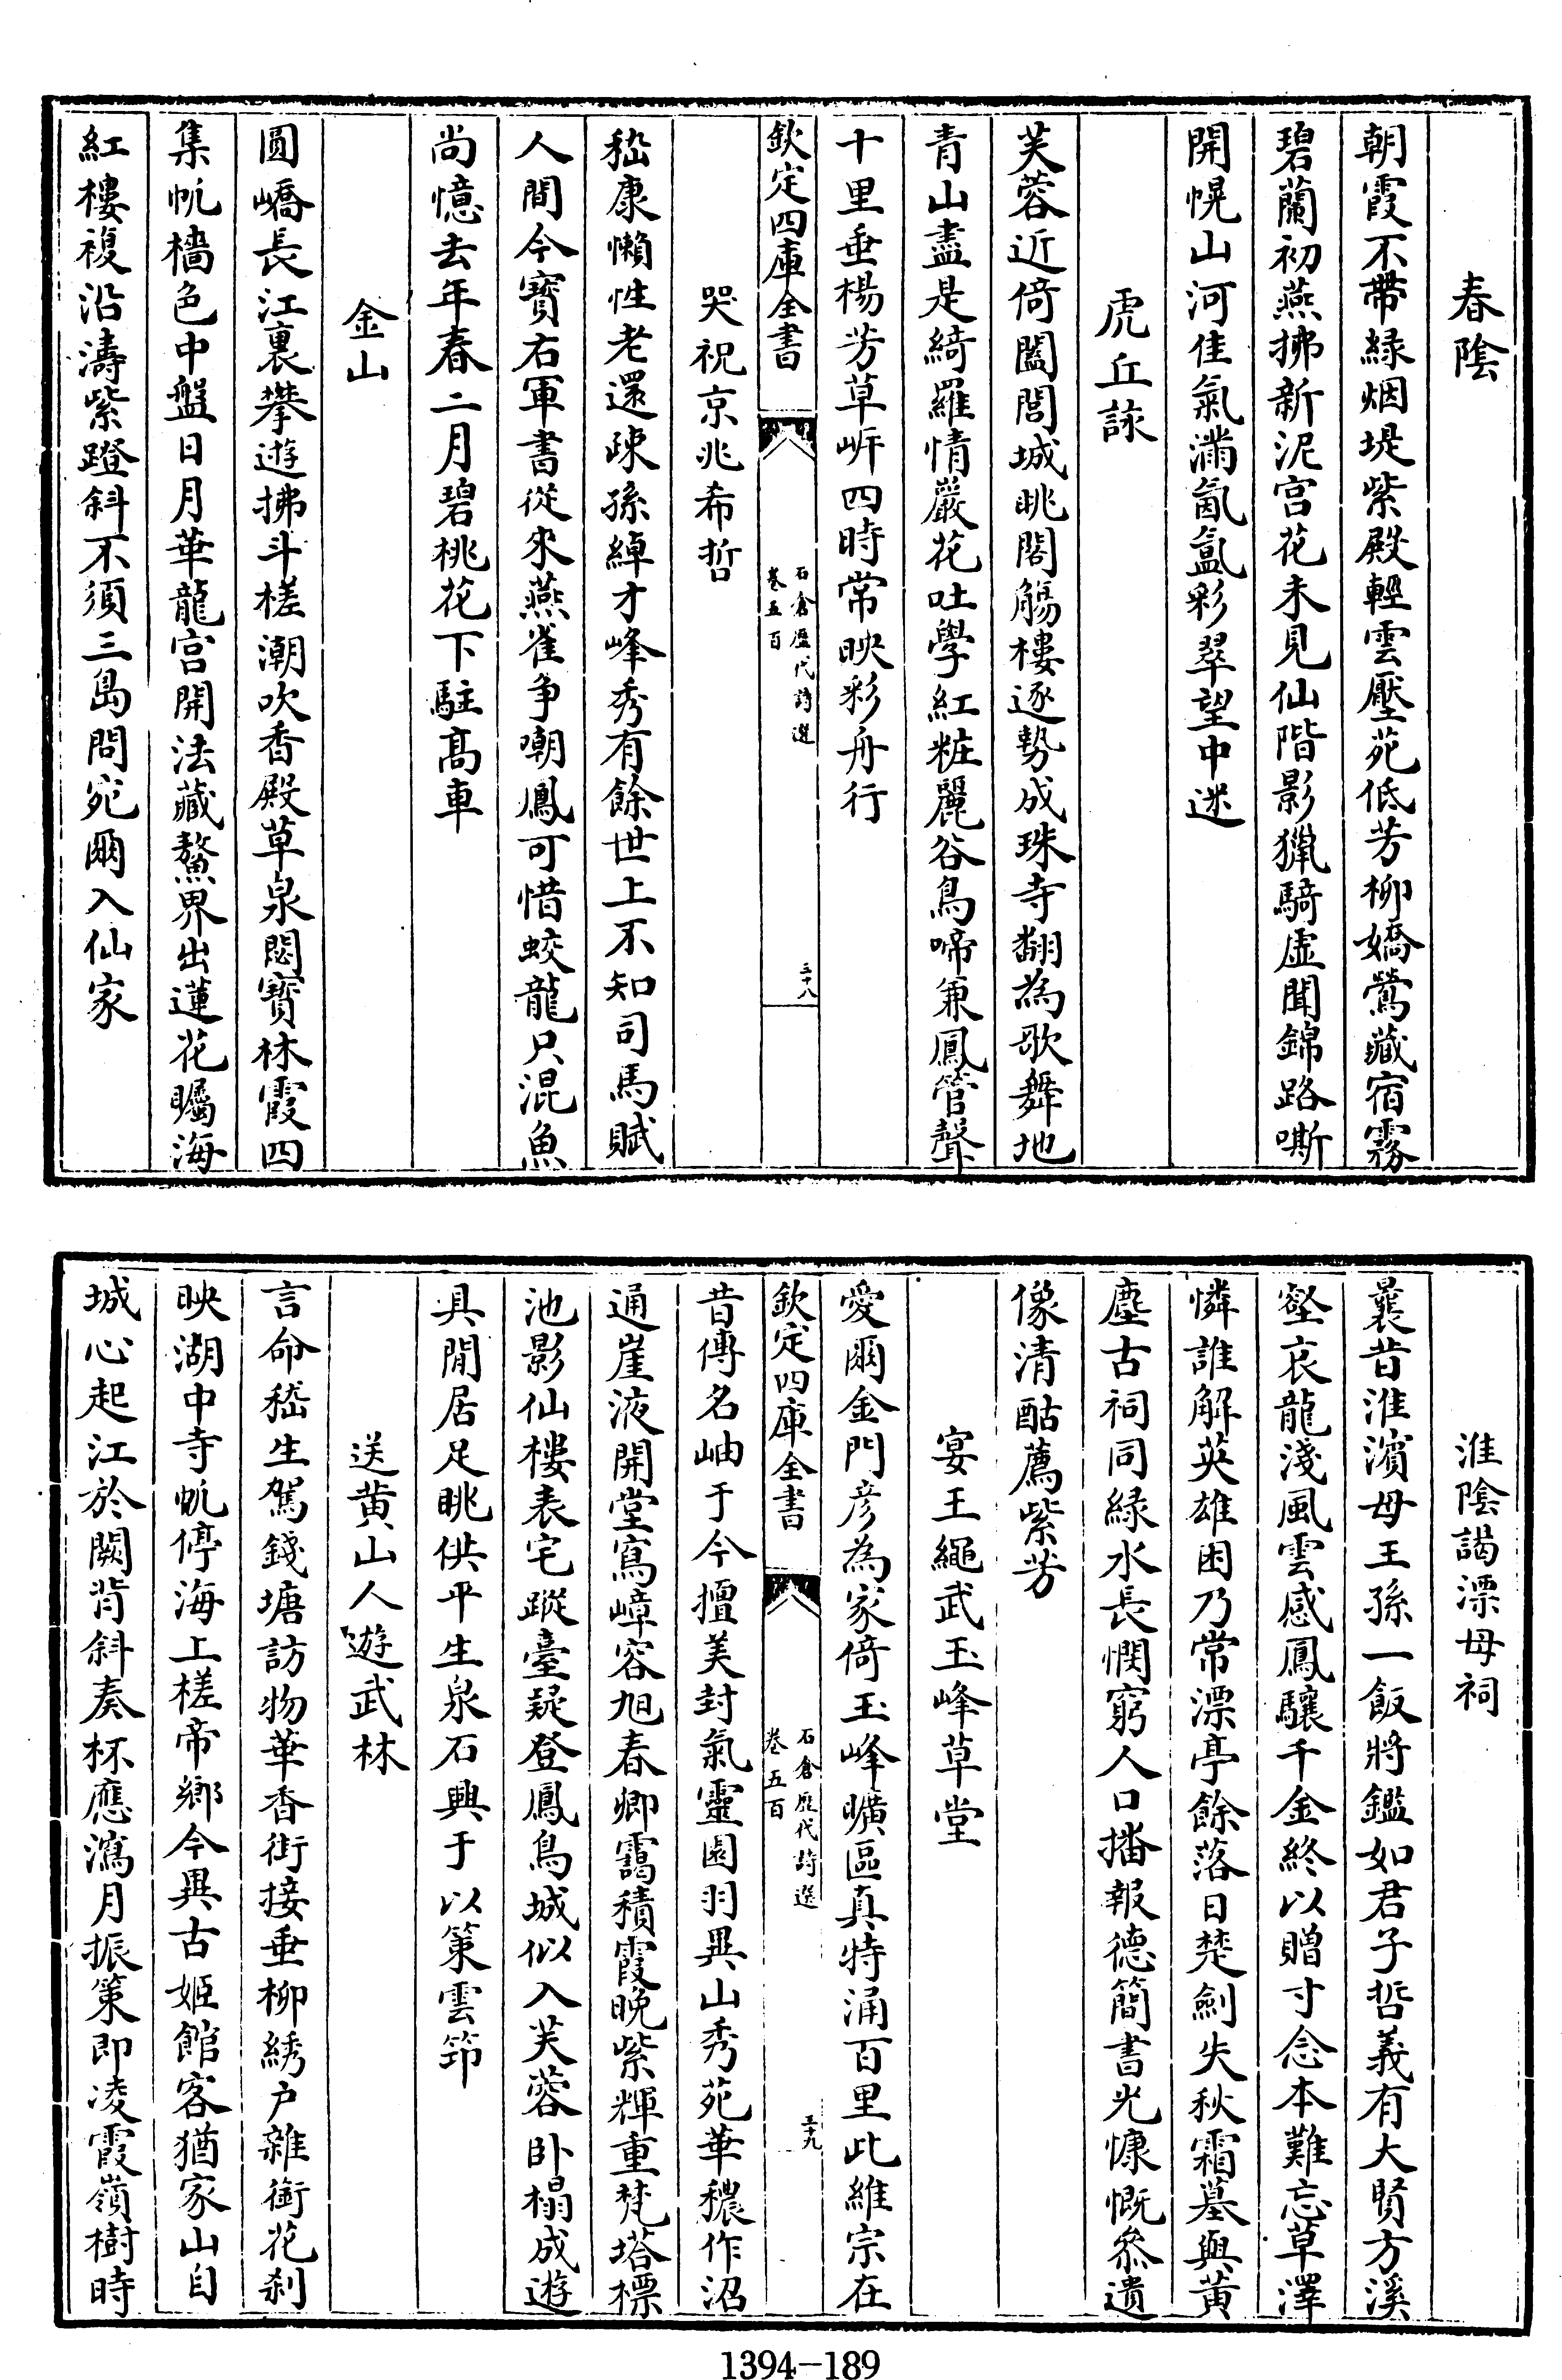 春隂
朝霞不帶緑烟堤紫殿輕雲壓苑低芳柳嬌鶯藏宿霧
碧蘭初燕拂新泥宫花未見仙階影獵騎虛聞錦路嘶
開幌山河佳氣滿氤氲彩翠望中迷
虎丘詠
芙蓉近倚闔閭城眺閣觴樓逐勢成珠寺翻為歌舞地
青山盡是綺羅情巖花吐學紅粧麗谷鳥啼兼鳳管聲
十里垂楊芳草岍四時常映彩舟行
欽定四庫全書
石倉歷代詩選
卷五百
三十八
哭祝京兆希哲
嵇康懶性老還疎孫綽才峰秀有餘世上不知司馬賦
人間今寳右軍書從來燕雀争嘲鳳可惜蛟龍只混魚
尚憶去年春二月碧桃花下駐髙車
金山
圓嶠長江裏攀遊拂斗槎潮吹香殿草泉閟寳林霞四
集帆檣色中盤日月華龍宫開法藏鰲界出蓮花矚海
紅樓複沿濤紫蹬斜不須三島問宛爾入仙家
淮隂謁漂母祠
曩昔淮濱母王孫一飯將鑑如君子哲義有大賢方溪
壑哀龍淺風雲感鳳驤千金終以贈寸念本難忘草澤
憐誰解英雄困乃常漂亭餘落日楚劍失秋霜墓與黄
塵古祠同緑水長憫窮人口播報德簡書光慷慨叅遺
像清酤薦紫芳
宴王繩武玉峰草堂
愛爾金門彦為家倚玉峰曠區真特涌百里此維宗在
欽定四庫全書
石倉歷代詩選
卷五百
三十九
昔傳名岫于今擅美封氣靈園羽異山秀苑華穠作沼
通崖液開堂寫嶂容旭春卿靄積霞晚紫輝重梵塔標
池影仙樓表宅蹤臺疑登鳳鳥城似入芙蓉卧榻成遊
具閒居足眺供平生泉石興于以策雲笻
送黄山人遊武林
言命嵇生駕錢塘訪物華香街接垂柳綉户雜銜花刹
映湖中寺帆停海上槎帝鄉今異古姬館客猶家山自
城心起江於闕背斜奏杯應瀉月振策即凌霞嶺樹時
1394-189